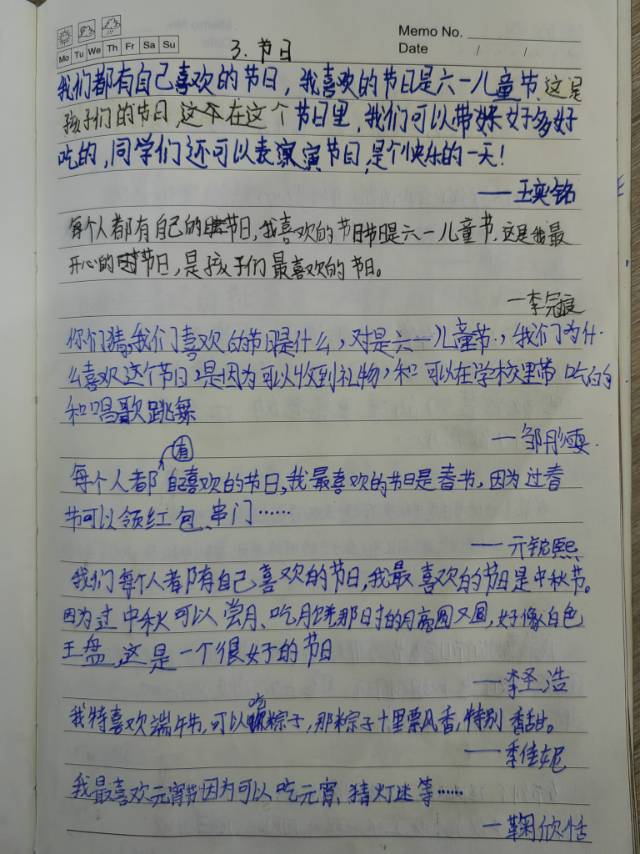 Memo No.
Mo Tu We Th Fr Sa Su
Date / /
3.节日
我们都有自己喜欢的节日，我喜欢的节日是六一儿童节，这是
孩子们的节日，这个在这个节日里，我们可以带好多好
吃的，同学们还可以表演节目，是个快乐的一天！
——王奕铭
每个人都有自己的节日，我喜欢的节日节日是六一儿童节，这是我最
开心的节日，是孩子们最喜欢的节日。
—李冠
你们猜，我们喜欢的节日是什么，对是六一儿童节，我们为什
么喜欢这个节日，是因为可以收到礼物，和可以在学校里带吃的
和唱歌跳舞
—邹彤
每个人都有自喜欢的节日，我最喜欢的节日是春书，因为过春
节可以领红包、串门……
——亓铭熙
我们每个人都有自己喜欢的节日，我最喜欢的节日是中秋节。
因为过中秋可以尝月、吃月饼那日才的月亮圆又圆，好像白色
王盘，这是一个很好的节日
—李圣浩
我特喜欢端午节，可以吃粽子，那粽子十里飘香，特别香甜。
—李佳妮
我最喜欢元宵节因为可以吃元宵、猜灯迷等……
—鞠欣恬